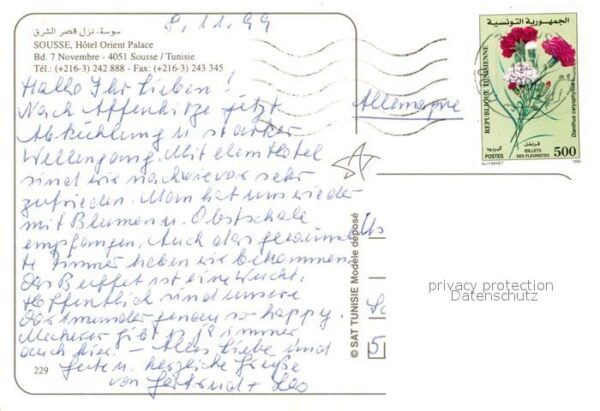 8.11.99
سوسة، نزل قصر الشرق
SOUSSE, Hôtel Orient Palace
Bd. 7 Novembre - 4051 Sousse / Tunisie
Tél.: (+216-3) 242 888 - Fax: (+216-3) 243 345
Hallo Ihr Lieben!
Nach Affenhitze jetzt
Abkühlung u. starker
Wellengang. Mit dem Hotel
sind wir nach wie vor sehr
zufrieden. Man hat uns wieder
mit Blumen u. Obstschale
empfangen. Auch das gewünsch
te Zimmer haben wir bekommen.
Das Buffet ist eine Wucht.
Hoffentlich sind unsere
Dortmunder genau so happy.
Meckerer gibt es ja immer
auch hier. - Alles Liebe und
Gute u. herzliche Grüße
von Gertrud + Leo
229
© SAT TUNISIE Modèle déposé
Allemagne
الجمهورية التونسية
REPUBLIQUE TUNISIENNE
Dianthus caryophyllus
قرنفل
البريد
POSTES
ŒILLETS
DES FLEURISTES
500
privacy protection
Datenschutz
5